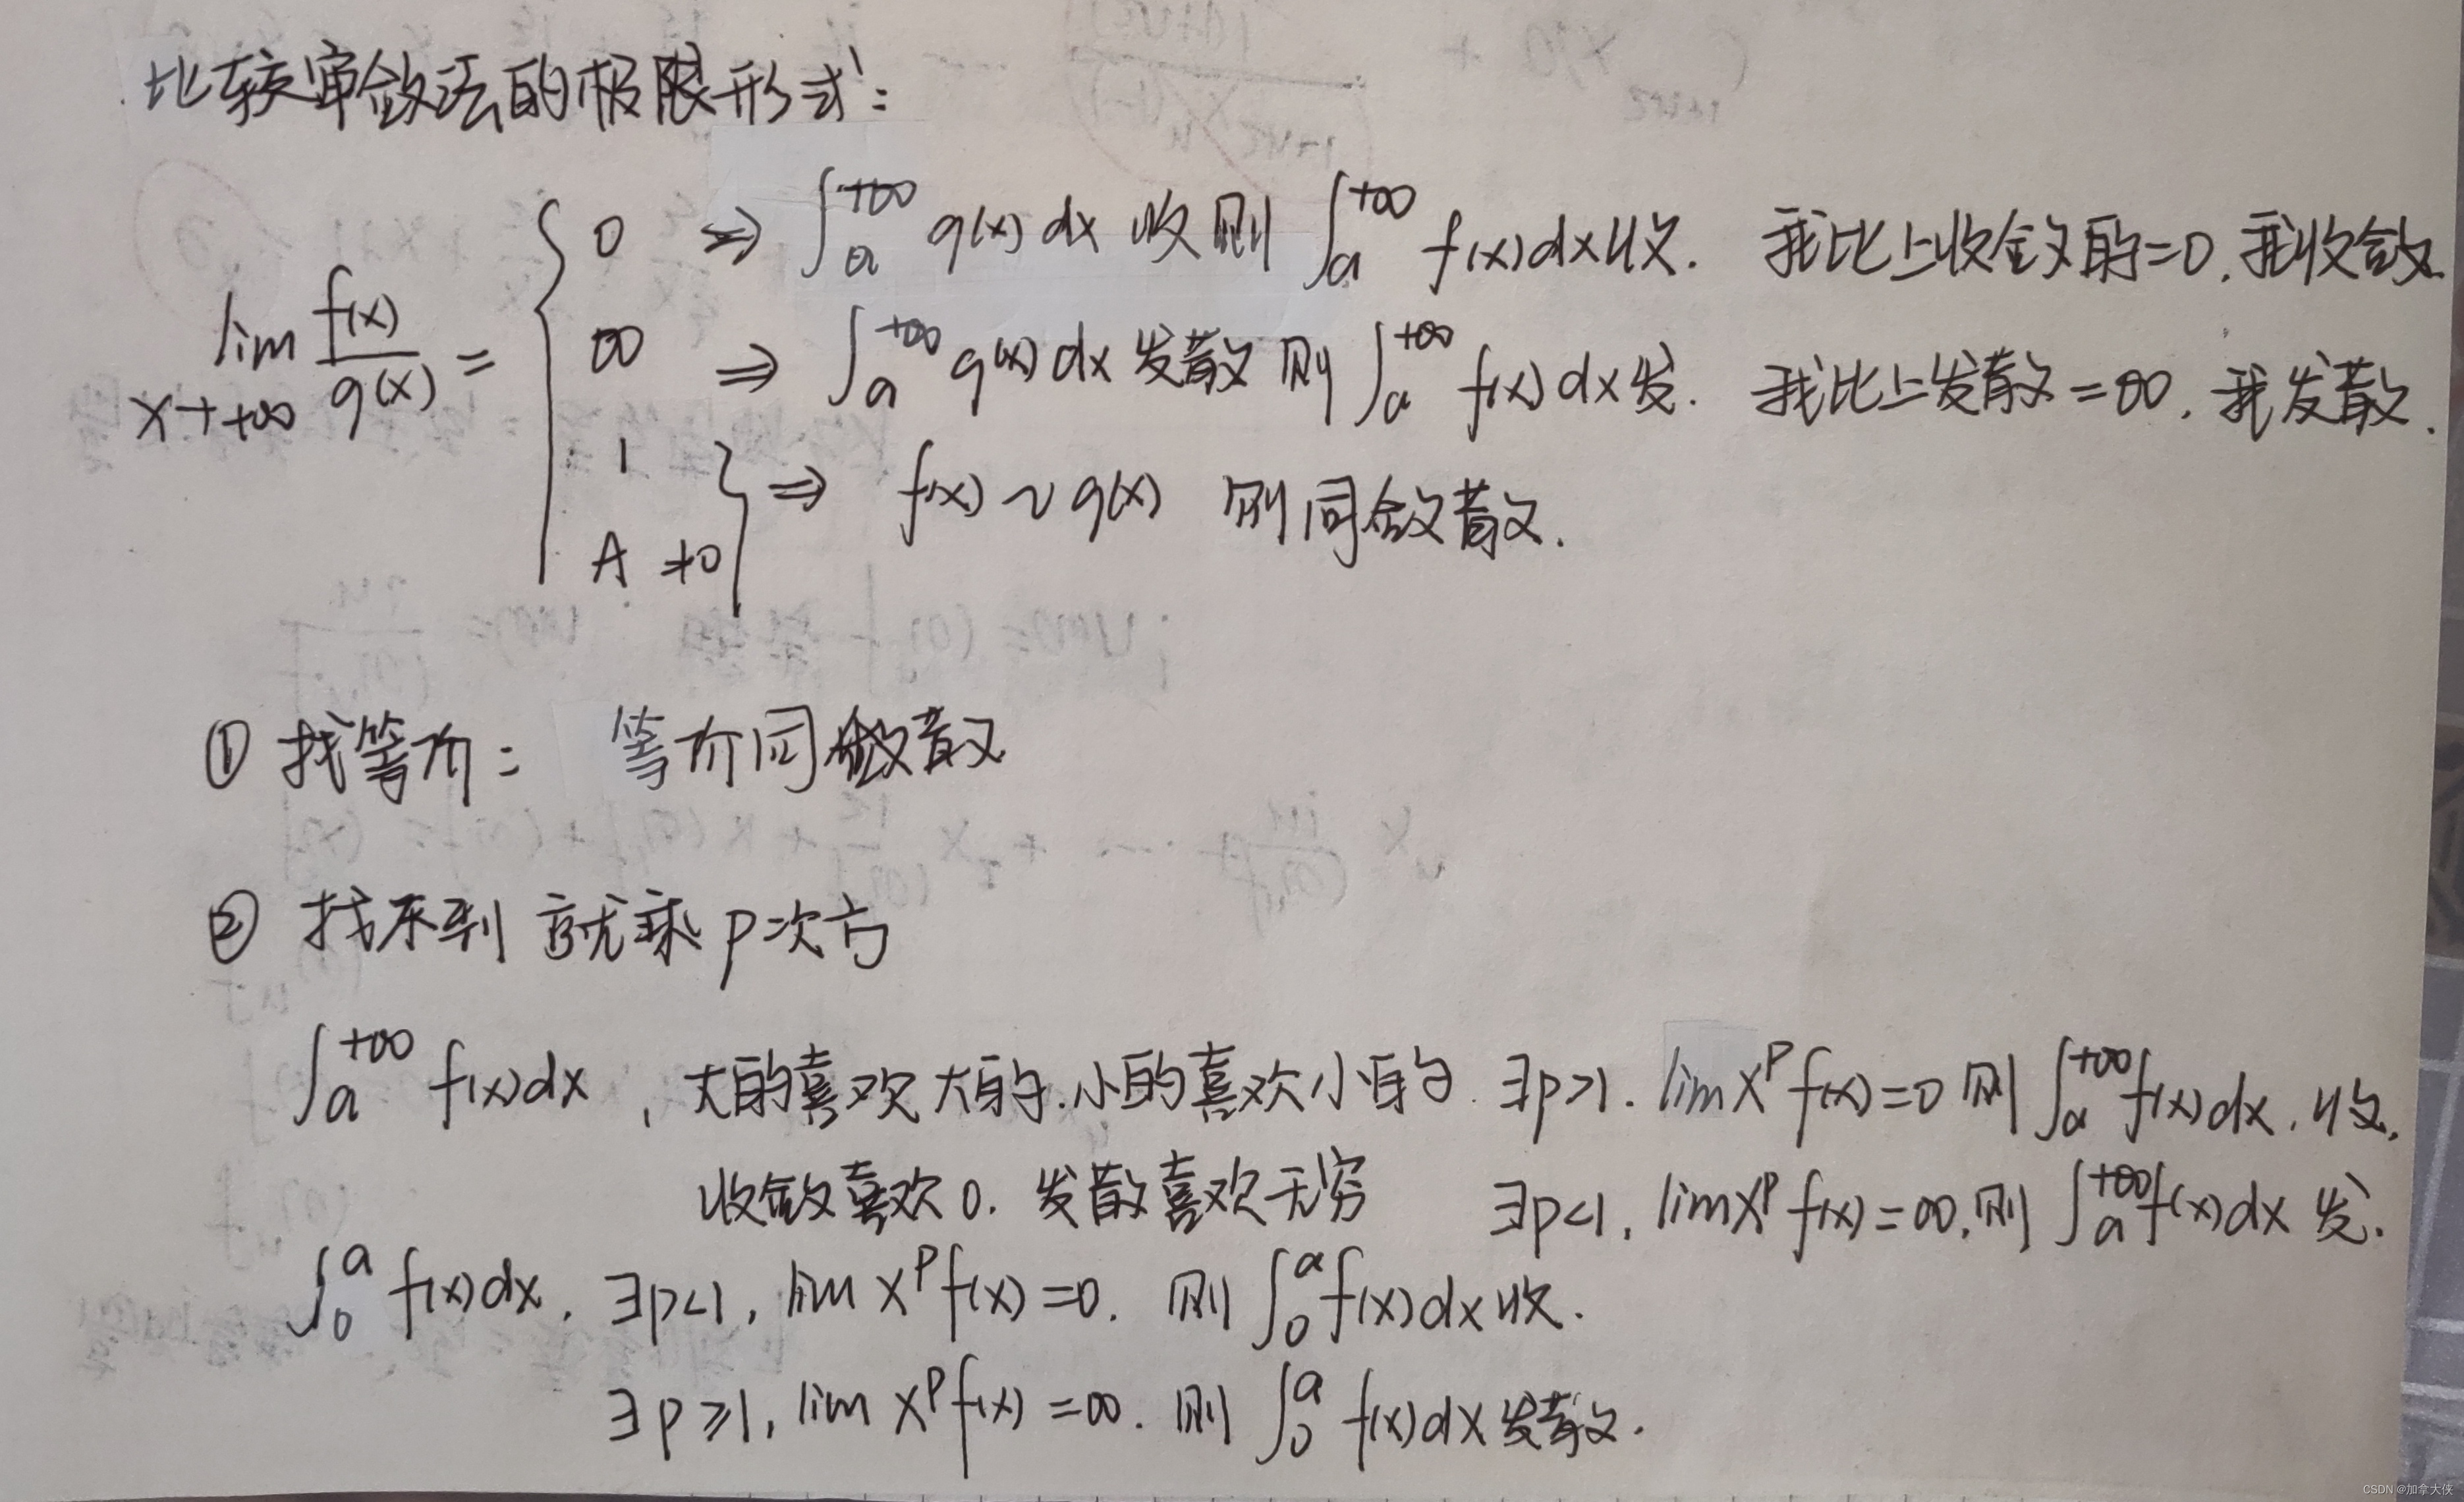 比较审敛法的极限形式:
lim x→+∞ f(x)/g(x) = { 0 ⇒ ∫_a^{+∞} g(x)dx 收 则 ∫_a^{+∞} f(x)dx 收. 我比上收敛的=0, 我收敛
∞ ⇒ ∫_a^{+∞} g(x)dx 发散 则 ∫_a^{+∞} f(x)dx 发. 我比上发散=∞, 我发散.
1
A ≠0 } ⇒ f(x) ~ g(x) 则同敛散.
① 找等价: 等价同敛散
② 找不到 就乘 p次方
∫_a^{+∞} f(x)dx, 大的喜欢大的.小的喜欢小的. ∃p>1. lim x^p f(x)=0 则 ∫_a^{+∞} f(x)dx.收.
收敛喜欢0. 发散喜欢无穷 ∃p<1, lim x^p f(x)=∞.则 ∫_a^{+∞} f(x)dx 发.
∫_0^a f(x)dx. ∃p<1, lim x^p f(x)=0. 则 ∫_0^a f(x)dx 收.
∃p≥1, lim x^p f(x)=∞. 则 ∫_0^a f(x)dx 发散.
CSDN @加拿大侠